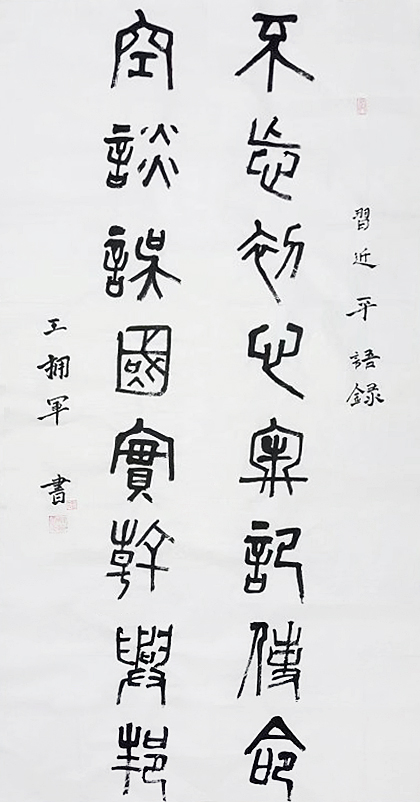 習近平語錄
不忘初心牢記使命
空談誤國實幹興邦
王拥軍 書